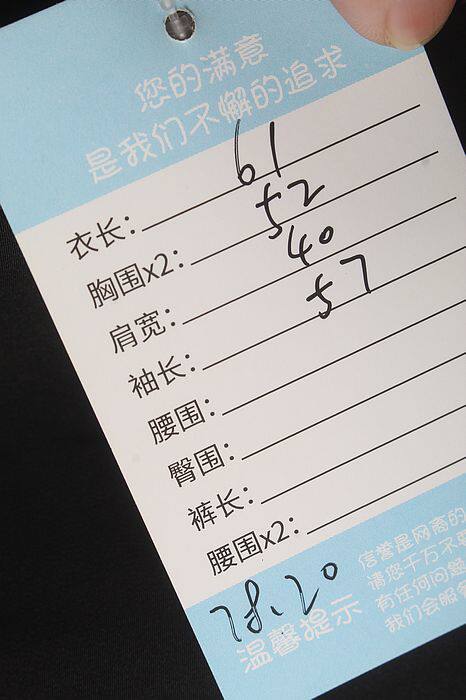 您的满意
是我们不懈的追求
衣长: 61
胸围x2: 52
肩宽: 40
袖长: 57
腰围:
臀围:
裤长:
腰围x2:
78.20
温馨提示
信誉是网商的
请您千万不要
有任何问题
我们会服务